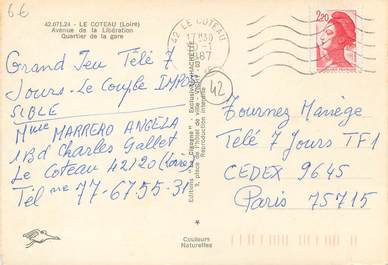 6€
42.071.24 - LE COTEAU (Loire)
Avenue de la Libération
Quartier de la gare
42 LE COTEAU
17H30
1987
2,20
Grand Jeu Télé 7
Jours - Le Couple IMPOS
SIBLE
Mme MARRERO ANGELA
1 Bd Charles Gallet
Le Coteau 42120 (Loire)
Tél me 77-67.55-31
Editions "La Cigogne" - Exclusivité HACHETTE
Reproduction interdite
42
Tournez Manège
Télé 7 Jours TF1
CEDEX 9645
Paris 75715
Couleurs
Naturelles